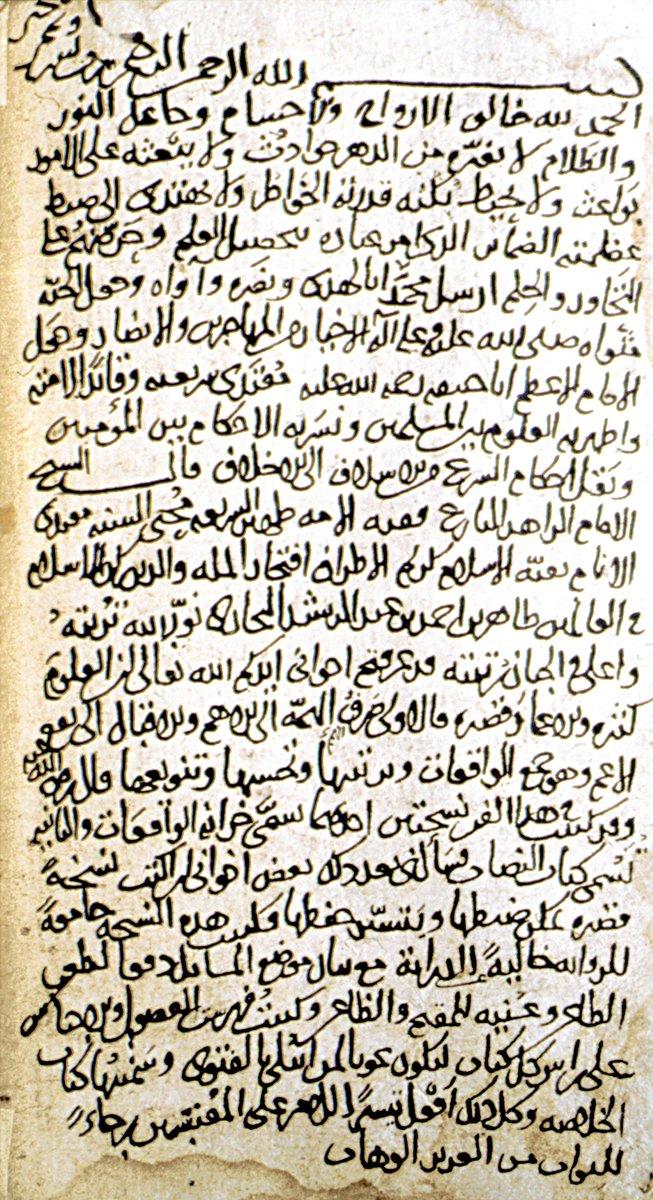 بسم الله الرحمن الرحيم
الحمد لله خالق الارواح والاحسام وجاعل النور
والظلام لا تغيره من الدهر حوادث ولا يبعثه على الامور
بواعث ولا يحيط بكنه قدرته الخواطر ولا تهتدى الى ضبط
عظمته الضماير عباده بتحصيل العلم وحرضهم على
والحلم ارسل محمدا بالهدى ونصره وآواه وجعل الجنة
مثواه صلى الله عليه وعلى آله الاخيار من المهاجرين والانصار وجعل
الامام الاعظم ابا حنيفه رحمه الله عليه مقتدى شريعته وقائد الامته
واظهر به العلوم بين المسلمين ونشر به الاحكام بين المؤمنين
ونقل احكام الشرع من الاسلاف الى الاخلاف قال الشيخ
الامام الزاهد البارع فقيه الامه ظهير الشريعه محيي السنه مقتدى
الانام بقية الاسلام كريم الاطراف افتخار المله والدين الاسلام
فى العالمين طاهر بن احمد بن عبد الرشيد البخارى نور الله تربته
واعلى فى الجنان رتبته قد عرفتم اخوانى ايدكم الله تعالى ان العلوم
كثيره والاعمار قصيره فالاولى صرف الهمة الى الاهم والاقبال الى نوع
الاعم وهو جمع الواقعات وترتيبها وتجنيسها وتنويعها قال رضى الله عنه
وقد كتبت فى هذا الفن نسختين احدهما سمى خزانة الواقعات والثانيه
تسمى كتاب النصاب فسألنى بعد ذلك بعض اخوانى ان اكتب نسخة
قصيره يمكن ضبطها ويتيسر حفظها فكتبت هذه النسخة جامعة
للروايه خالية مع بيان موضع المسائل
وكتبت فهرس الفصول والاجناس
على راس كل كتاب ليكون عونا لمن ابتلى بالفتوى وسميتها كتاب
الخلاصه وكل ذلك اقول تيسيرا للامر على المقتبسين رجاء
للثواب من العزيز الوهاب